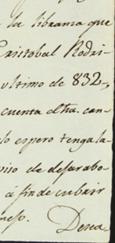 la libranza que
Cristobal Rodri-
ultimo de 832,
cuenta dha. can-
lo espero tenga la
de desaraba
á fin de cubrir
Desea